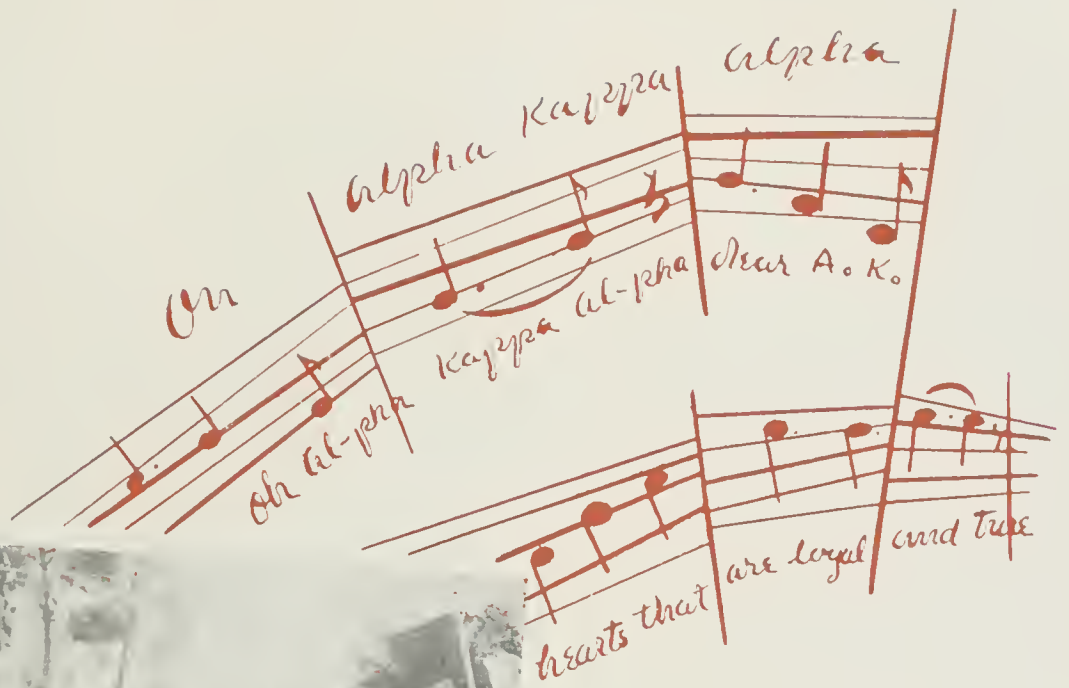 On Alpha Kappa Alpha
Oh Al-pha Kappa Al-pha dear A. K.
hearts that are loyal and true